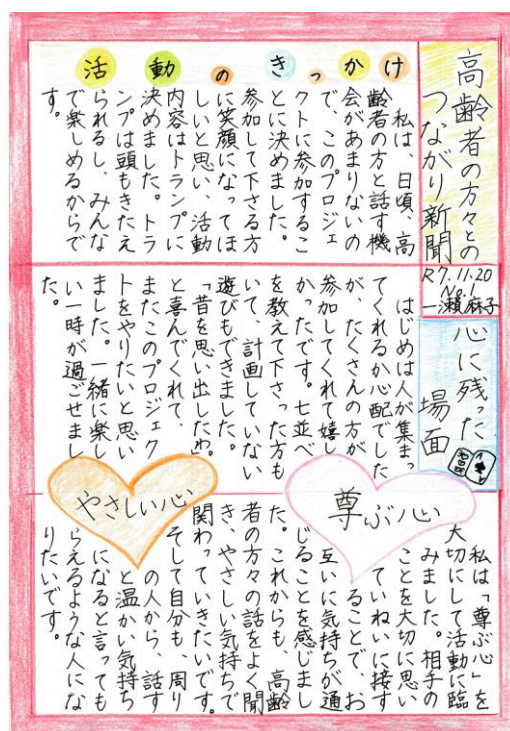 高齢者の方々との
つながり新聞
R7.11.20
No.1
一瀬麻子
活動のきっかけ
私は、日頃、高
齢者の方と話す機
会があまりないの
で、このプロジェ
クトに参加するこ
とに決めました。
参加して下さる方
に笑顔になってほ
しいと思い、活動
内容はトランプに
決めました。トラ
ンプは頭もきたえ
られるし、みんな
で楽しめるからで
す。
心に残った
場面
はじめは人が集まっ
てくれるか心配でした
が、たくさんの方が
参加してくれて嬉し
かったです。七並べ
を教えて下さった方も
いて、計画していない
遊びもできました。
「昔を思い出したわ。」
と喜んでくれて、
またこのプロジェク
トをやりたいと思い
ました。一緒に楽し
い一時が過ごせまし
た。
尊ぶ心
やさしい心
私は「尊ぶ心」を
大切にして活動に臨
みました。相手の
ことを大切に思い
ていねいに接す
ることで、お
互いに気持ちが通
じることを感じまし
た。これからも、高齢
者の方々の話をよく聞
き、やさしい気持ちで
関わっていきたいです。
そして自分も、周り
の人から、話す
と温かい気持ち
になると言っても
らえるような人にな
りたいです。